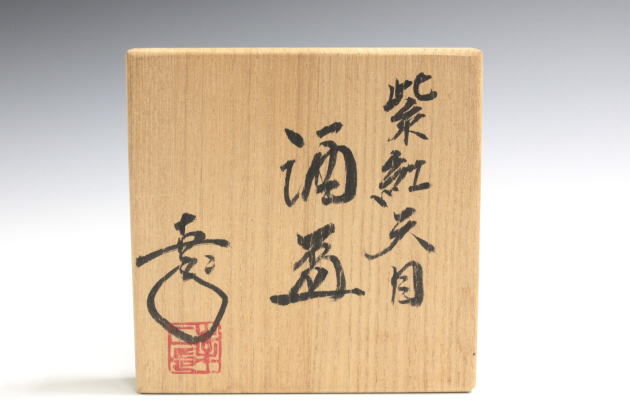 紫紅天目
酒盃